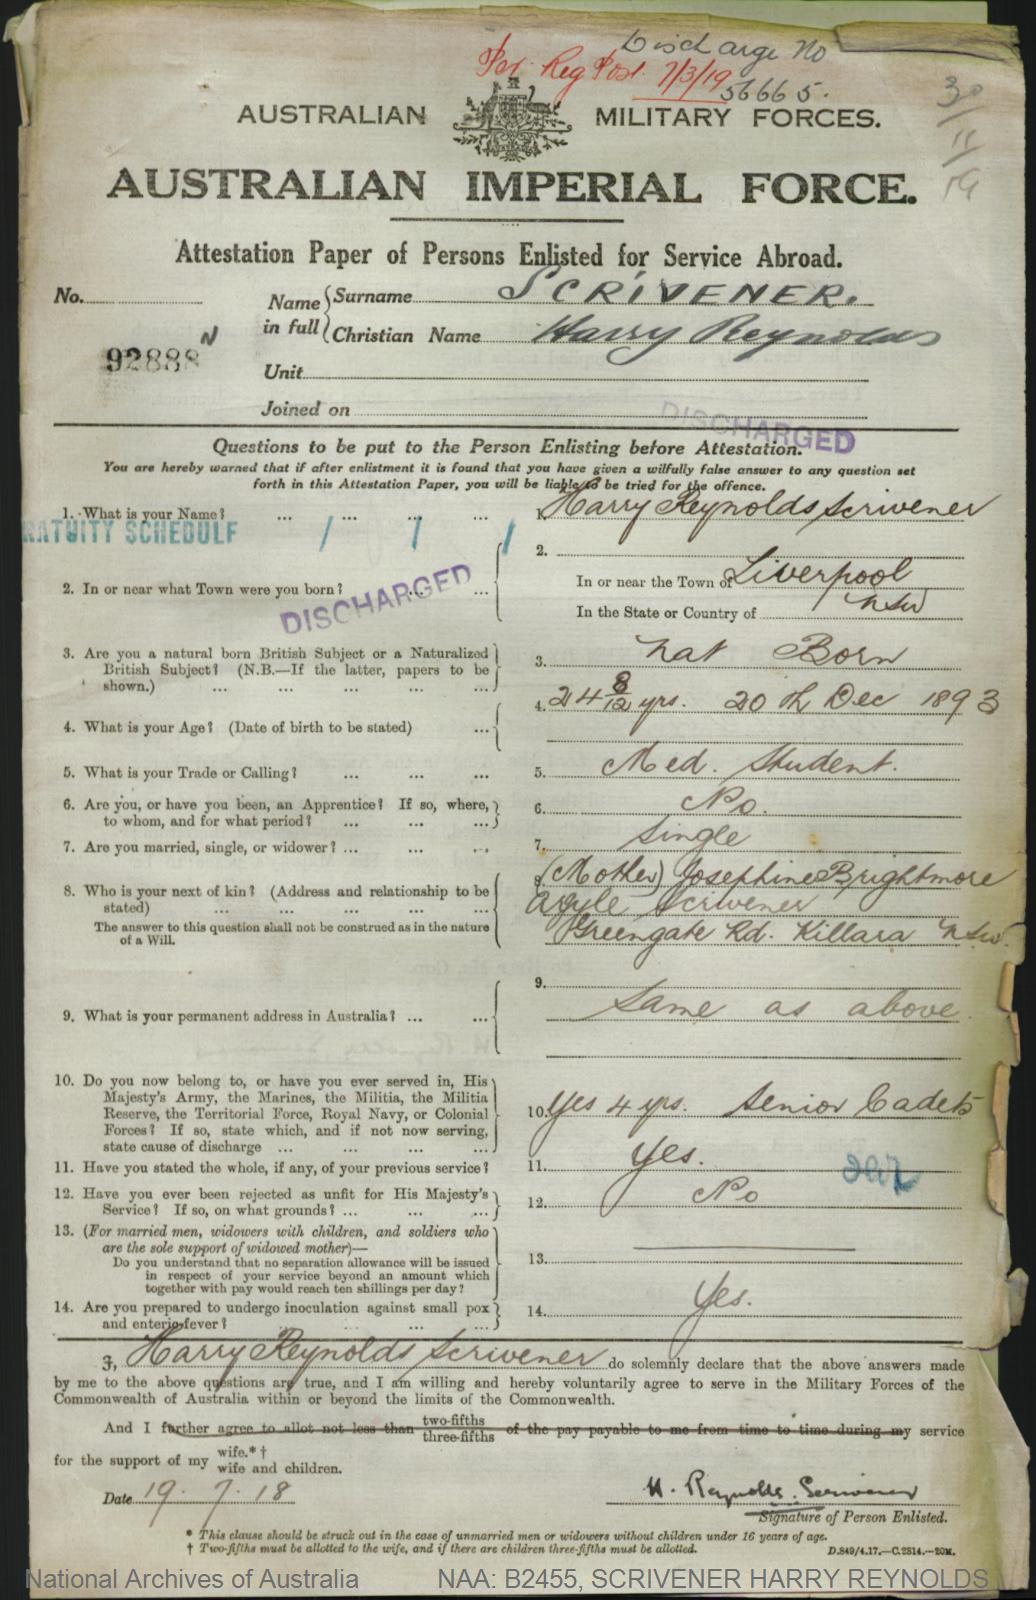 Discharge No
Per Reg Post 7/3/19 56665.
30/11/19
AUSTRALIAN MILITARY FORCES.
AUSTRALIAN IMPERIAL FORCE.
Attestation Paper of Persons Enlisted for Service Abroad.
No. Name in full Surname SCRIVENER.
Christian Name Harry Reynolds
N 92888
Unit
Joined on
DISCHARGED
Questions to be put to the Person Enlisting before Attestation.
You are hereby warned that if after enlistment it is found that you have given a wilfully false answer to any question set
forth in this Attestation Paper, you will be liable to be tried for the offence.
1. What is your Name? ... ... ... ... 1. Harry Reynolds Scrivener
RATUITY SCHEDULE / 1 1
2.
2. In or near what Town were you born? ... ... In or near the Town of Liverpool
In the State or Country of NSW
DISCHARGED
3. Are you a natural born British Subject or a Naturalized
British Subject? (N.B.—If the latter, papers to be
shown.) ... ... ... ... ... 3. Nat Born
4. What is your Age? (Date of birth to be stated) ... 4. 24 8/12 yrs. 20th Dec 1893
5. What is your Trade or Calling? ... ... ... 5. Med. Student.
6. Are you, or have you been, an Apprentice? If so, where,
to whom, and for what period? ... ... ... 6. No.
7. Are you married, single, or widower? ... ... ... 7. Single
8. Who is your next of kin? (Address and relationship to be
stated) ... ... ... ... ... 8. (Mother) Josephine Brightmore
Argyle Scrivener
The answer to this question shall not be construed as in the nature
of a Will. Greengate Rd. Killara NSW.
9. What is your permanent address in Australia? ... ... 9. Same as above.
10. Do you now belong to, or have you ever served in, His
Majesty's Army, the Marines, the Militia, the Militia
Reserve, the Territorial Force, Royal Navy, or Colonial
Forces? If so, state which, and if not now serving,
state cause of discharge ... ... ... ... 10. Yes 4 yrs. Senior Cadets
11. Have you stated the whole, if any, of your previous service? 11. Yes.
12. Have you ever been rejected as unfit for His Majesty's
Service? If so, on what grounds? ... ... ... 12. No
13. (For married men, widowers with children, and soldiers who
are the sole support of widowed mother)—
Do you understand that no separation allowance will be issued
in respect of your service beyond an amount which
together with pay would reach ten shillings per day? 13.
14. Are you prepared to undergo inoculation against small pox
and enteric fever? ... ... ... 14. Yes.
I, Harry Reynolds Scrivener do solemnly declare that the above answers made
by me to the above questions are true, and I am willing and hereby voluntarily agree to serve in the Military Forces of the
Commonwealth of Australia within or beyond the limits of the Commonwealth.
And I further agree to allot not less than two-fifths three-fifths of the pay payable to me from time to time during my service
for the support of my wife.*† wife and children.
Date 19. 7. 18 H. Reynolds. Scrivener
Signature of Person Enlisted.
* This clause should be struck out in the case of unmarried men or widowers without children under 16 years of age.
† Two-fifths must be allotted to the wife, and if there are children three-fifths must be allotted. D.849/4.17.—C.2814.—20M.
National Archives of Australia NAA: B2455, SCRIVENER HARRY REYNOLDS